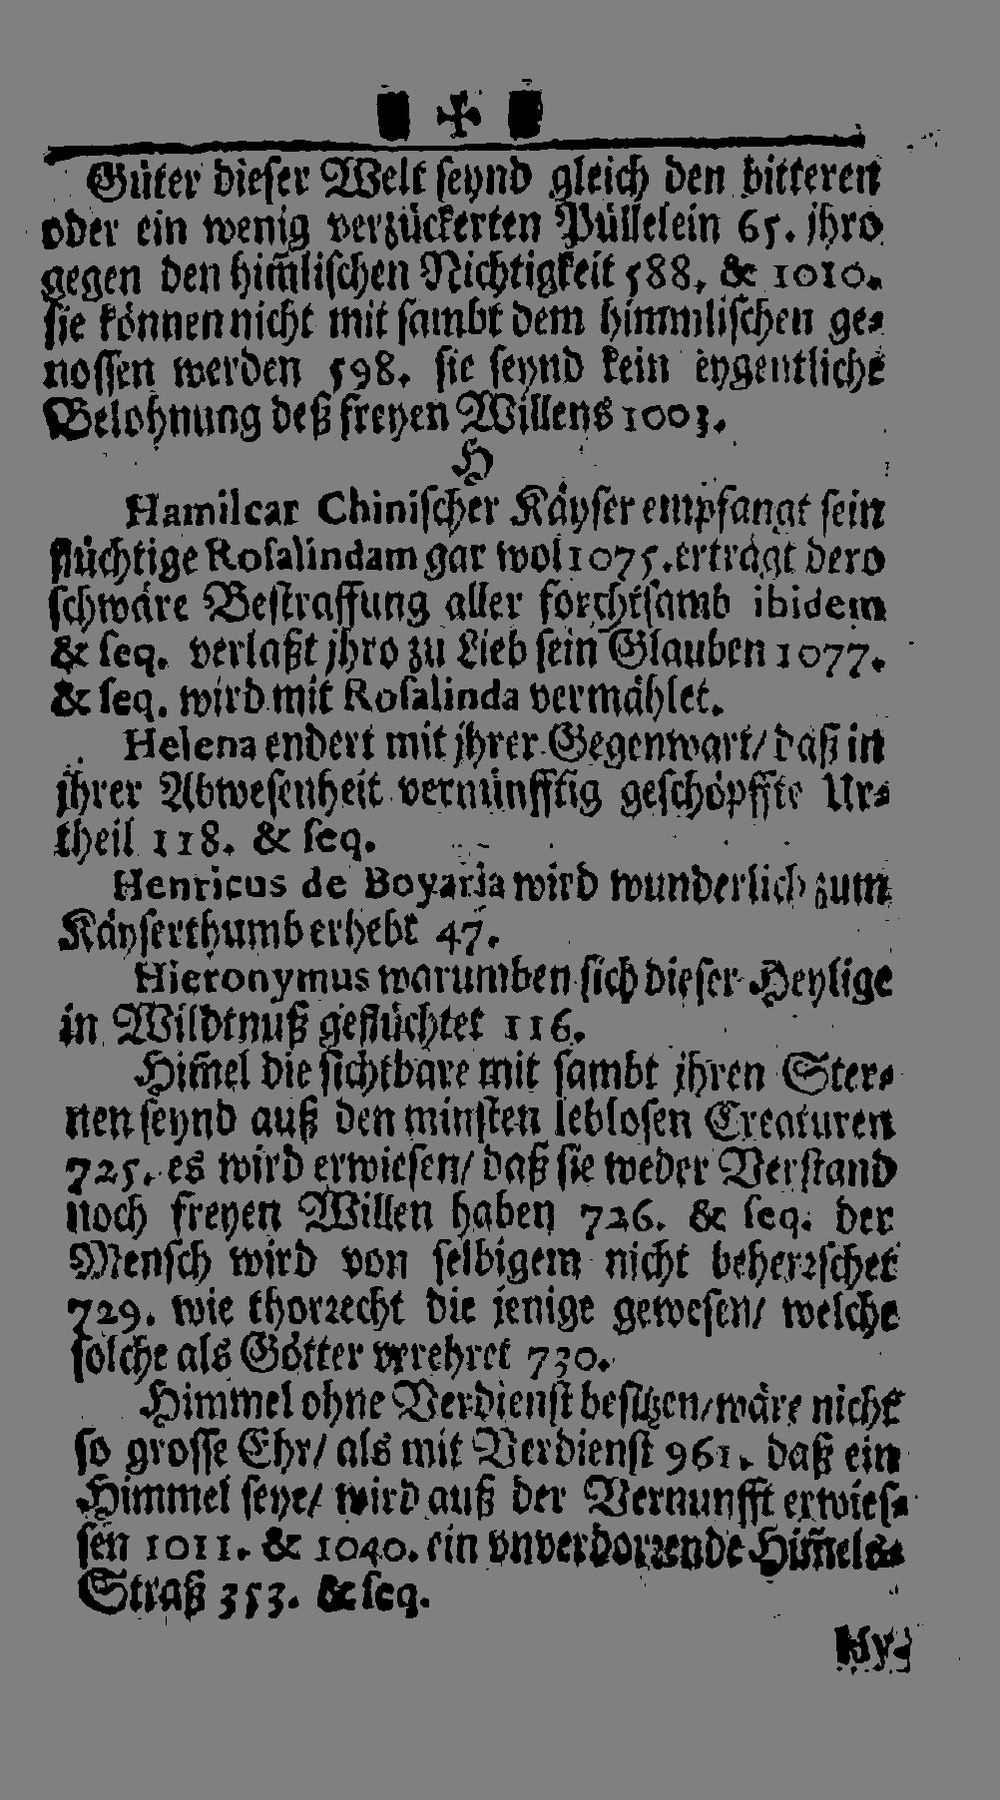 Güter dieser Welt seynd gleich den bitteren
oder ein wenig verzückerten Püllelein 65. jhro
gegen den him̃lischen Nichtigkeit 588. & 1010.
sie können nicht mit sambt dem himmlischen ge-
nossen werden 598. sie seynd kein eygentliche
Belohnung deß freyen Willens 1003.
H
Hamilcar Chinischer Käyser empfangt sein
flüchtige Rosalindam gar wol 1075. ertragt dero
schwäre Bestraffung aller forchtsamb ibidem
& seq. verlaßt jhro zu Lieb sein Glauben 1077.
& seq. wird mit Rosalinda vermählet.
Helena endert mit jhrer Gegenwart/ daß in
jhrer Abwesenheit vernünfftig geschöpffte Ur-
theil 118. & seq.
Henricus de Boyaria wird wunderlich zum
Käyserthumb erhebt 47.
Hieronymus warumben sich dieser Heylige
in Wildtnuß geflüchtet 116.
Him̃el die sichtbare mit sambt jhren Ster-
nen seynd auß den minsten leblosen Creaturen
725. es wird erwiesen/ daß sie weder Verstand
noch freyen Willen haben 726. & seq. der
Mensch wird von selbigem nicht beherꝛschet
729. wie thorꝛecht die jenige gewesen/ welche
solche als Götter verehret 730.
Himmel ohne Verdienst besitzen/ wäre nicht
so grosse Ehr/ als mit Verdienst 961. daß ein
Himmel seye/ wird auß der Vernunfft erwies-
sen 1011. & 1040. ein vnverdorꝛende Him̃els-
Straß 353. & seq.
Hy-